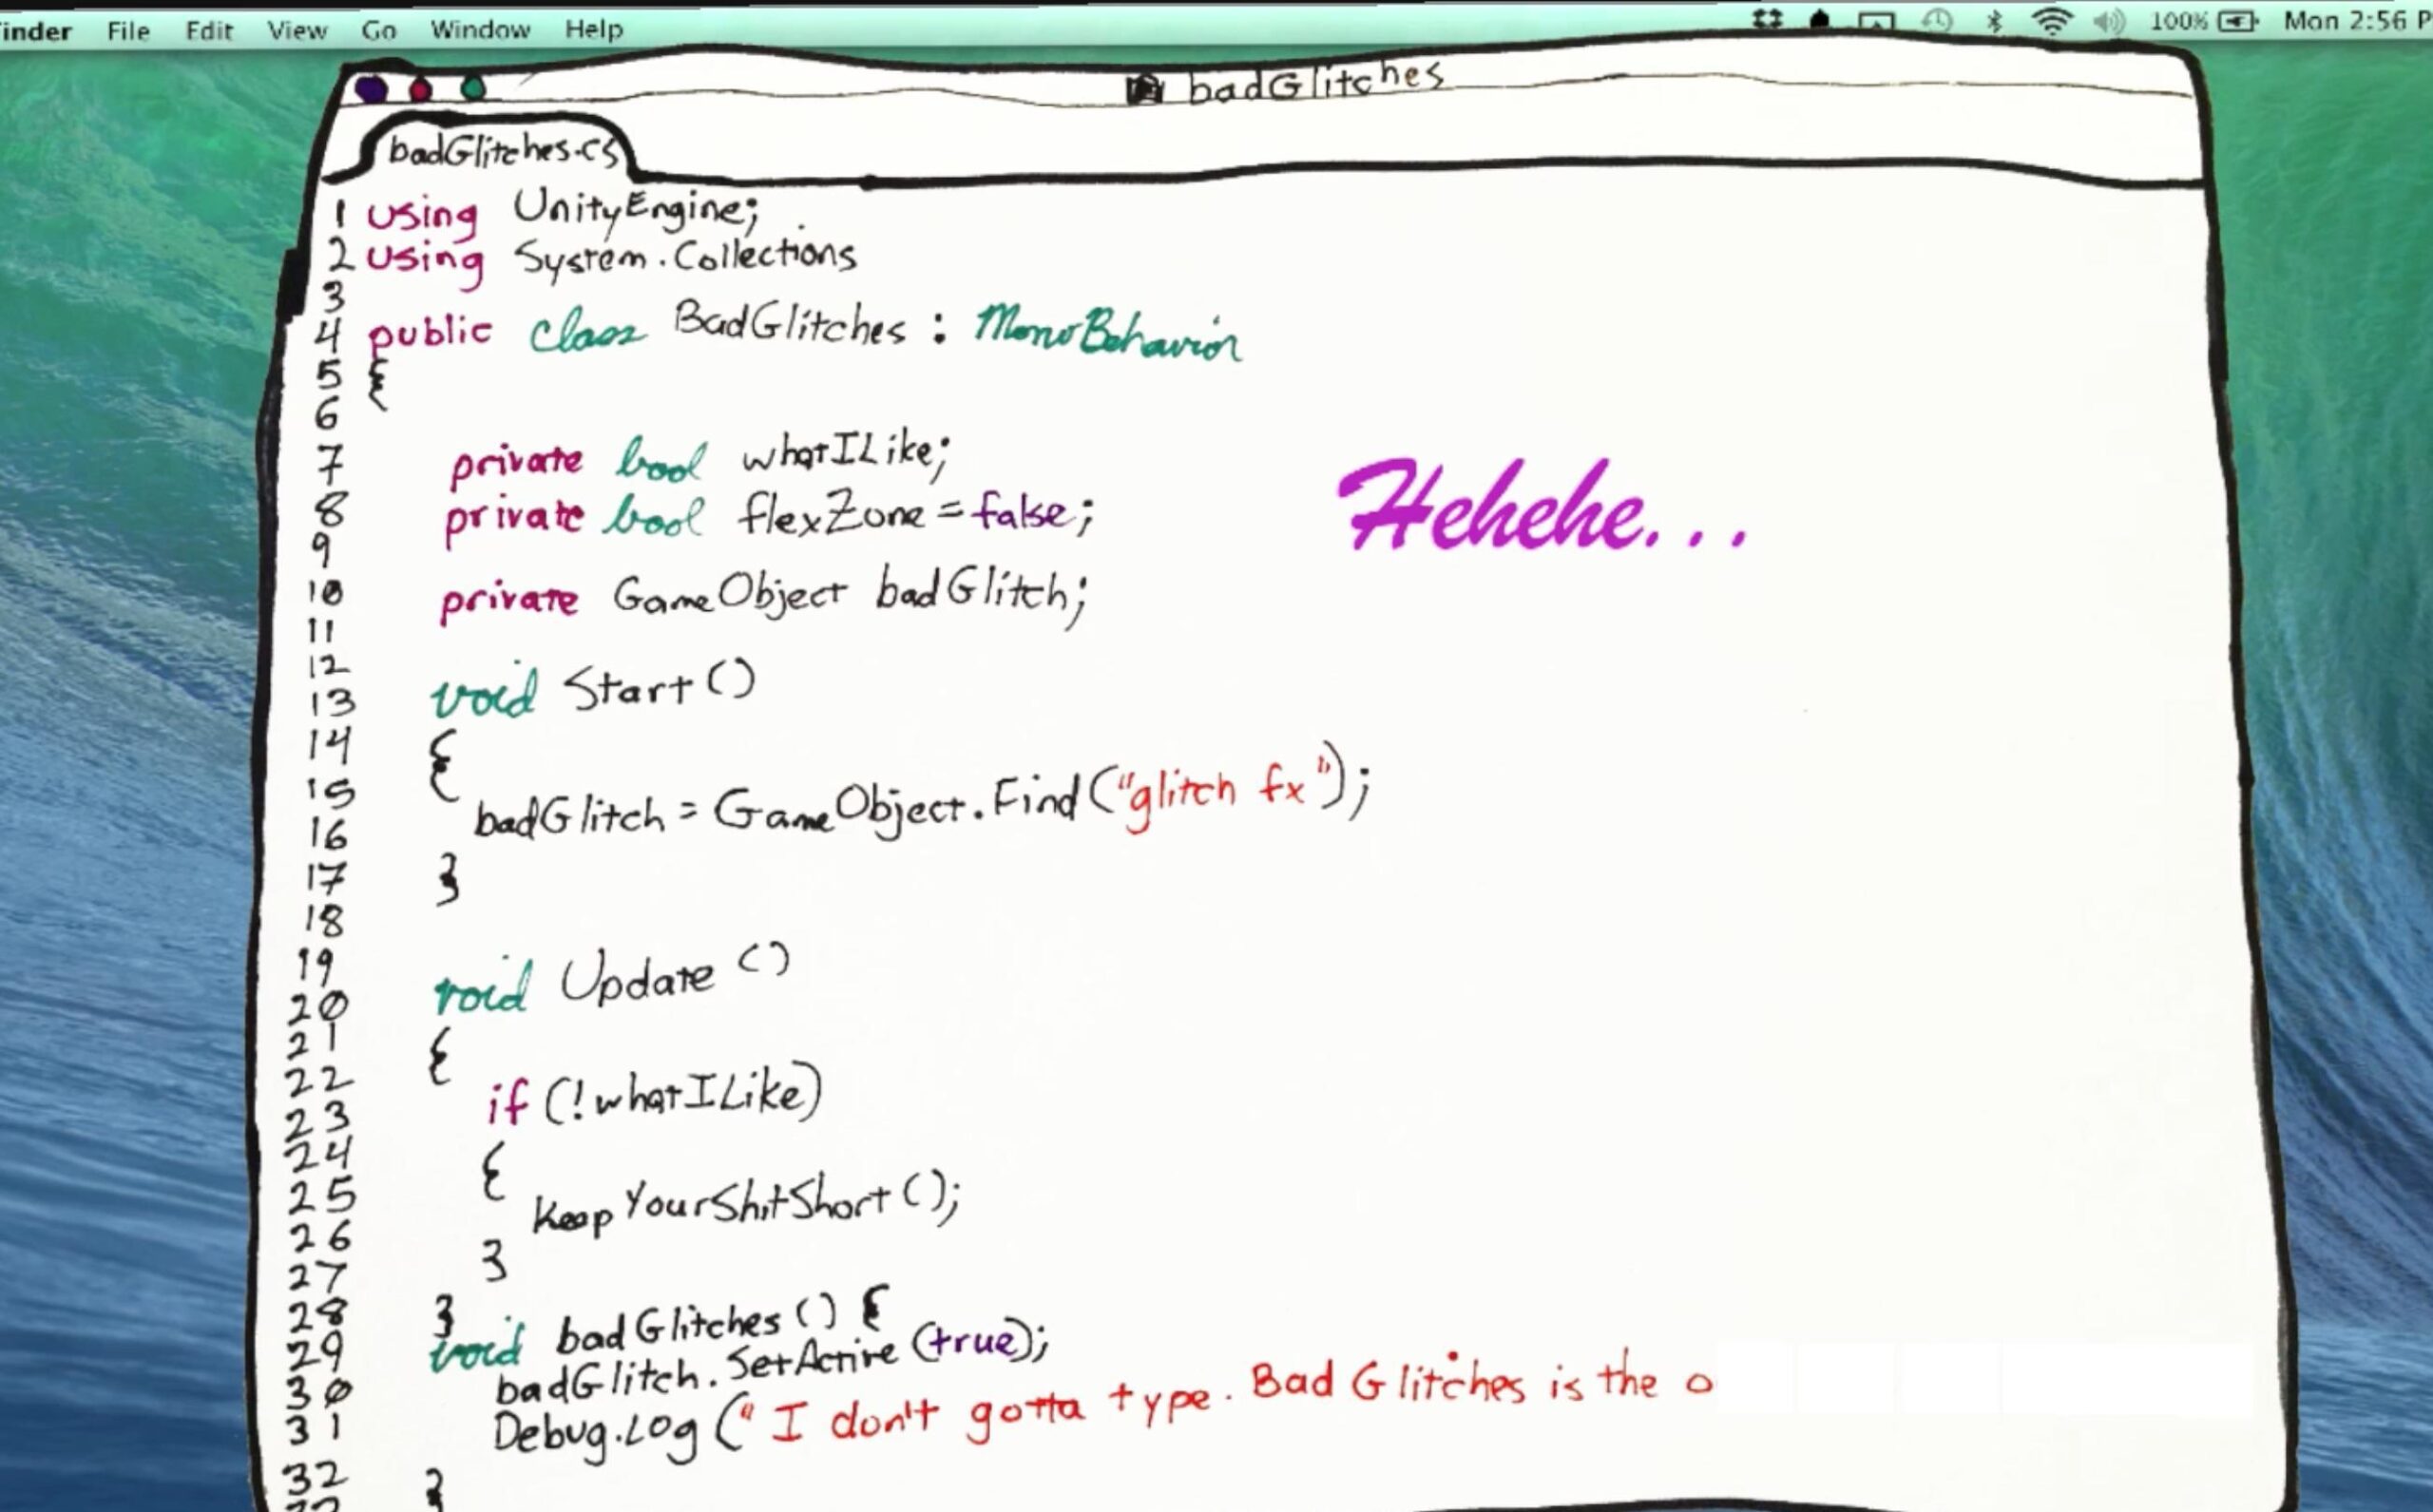 inder File Edit View Go Window Help 100% Mon 2:56 P
badGlitches
badGlitches.cs
1 using UnityEngine;
2 using System.Collections
3
4 public class BadGlitches : MonoBehavior
5 {
6
7 private bool whatILike;
8 private bool flexZone = false;
9
10 private GameObject badGlitch;
11
12
13 void Start ()
14 {
15
16 badGlitch = GameObject.Find ("glitch fx");
17 }
18
19
20 void Update ()
21 {
22
23 if (!whatILike)
24 {
25 KeepYourShitShort ();
26 }
27
28 }
29 void badGlitches () {
30 badGlitch.SetActive (true);
31 Debug.Log (" I don't gotta type. Bad Glitches is the o
32 }
Hehehe...